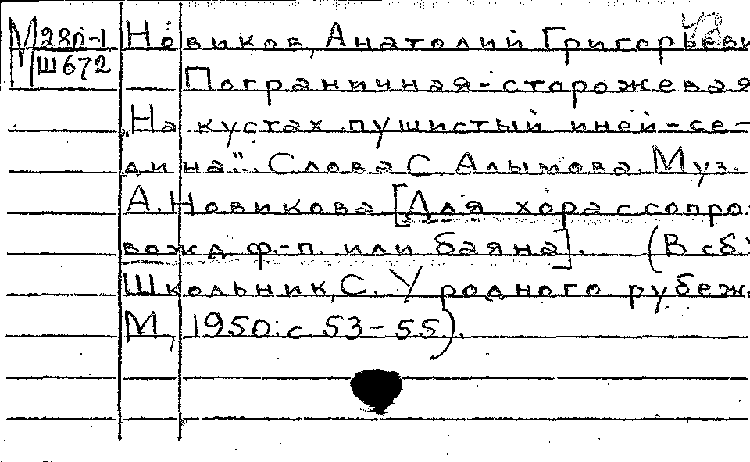 М 280-1
Ш672
Новиков, Анатолий Григорьеви
Пограничная-сторожевая
„На кустах пушистый иней-се-
дина". Слова С Алымова. Муз.
А. Новикова [Для хора с сопро-
вожд ф-п. или баяна]. (В сб:
Школьник, С. У родного рубеж
М, 1950. с 53-55).